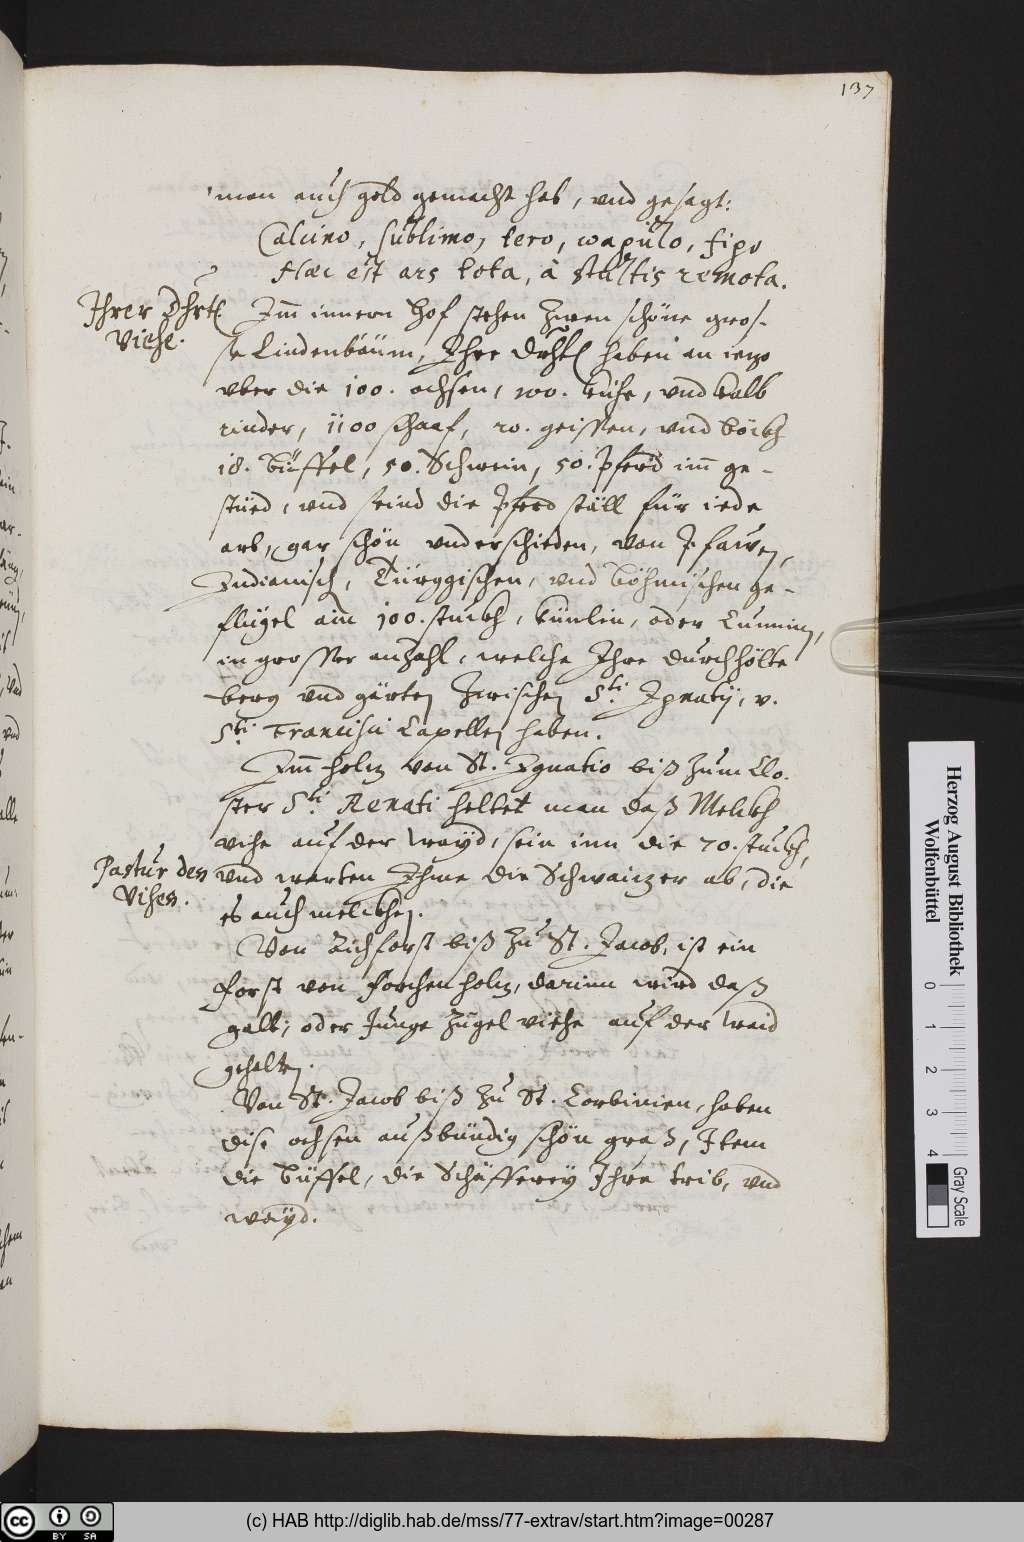 137
man auch gold gemacht hab, vnd gesagt:
Calcino, sublimo, tero, wapulo, figo
Haec est ars tota, à stultis remota.
Ihrer Dhrtl
Viehe.
Im innern Hof stehen zwen schöne gros-
se Lindenbäum, Ihre Drhtl haben an iezo
vber die 100. ochsen, 100. kuhe, vnd kalb
rinder, 1100 schaaf, 20. geissen, vnd böckh
18. Büffel, 50. Schwein, 50. Pferd im ge-
stüed, vnd seind die Pferd ställ für iede
art, gar schön vnderschieden, von Pfawen,
Indianisch, Türggischen, vnd böhmischen ge-
flügel ain 100. stuckh, künlin, oder Cuninen,
in grosser anzahl, welche Ihre durchhölte
berg vnd gärten zwischen Sti. Ignatij, v.
Sti. Francisci Capellen haben.
Im holz von St. Ignatio biß zum Clo-
ster Sti. Renati heltet man daß Melckh
Pastur des
Vihes.
vihe auf der Wayd, sein inn die 70. stuckh,
vnd warten Ihme die Schwaizer ab, die
es auch melckhen.
Von Aichforst biß zu St. Jacob, ist ein
forst von forchen holz, darinn wird daß
galt, oder Junge zügel viehe auf der Waid
gehalten.
Von St. Jacob biß zu St. Corbinien, haben
dise ochsen außbündig schön graß, Item
die Büffel, die Schäfferey Ihre trib, vnd
wayd.
Herzog August Bibliothek
Wolfenbüttel
0 1 2 3 4
Gray Scale
(c) HAB http://diglib.hab.de/mss/77-extrav/start.htm?image=00287
cc BY SA